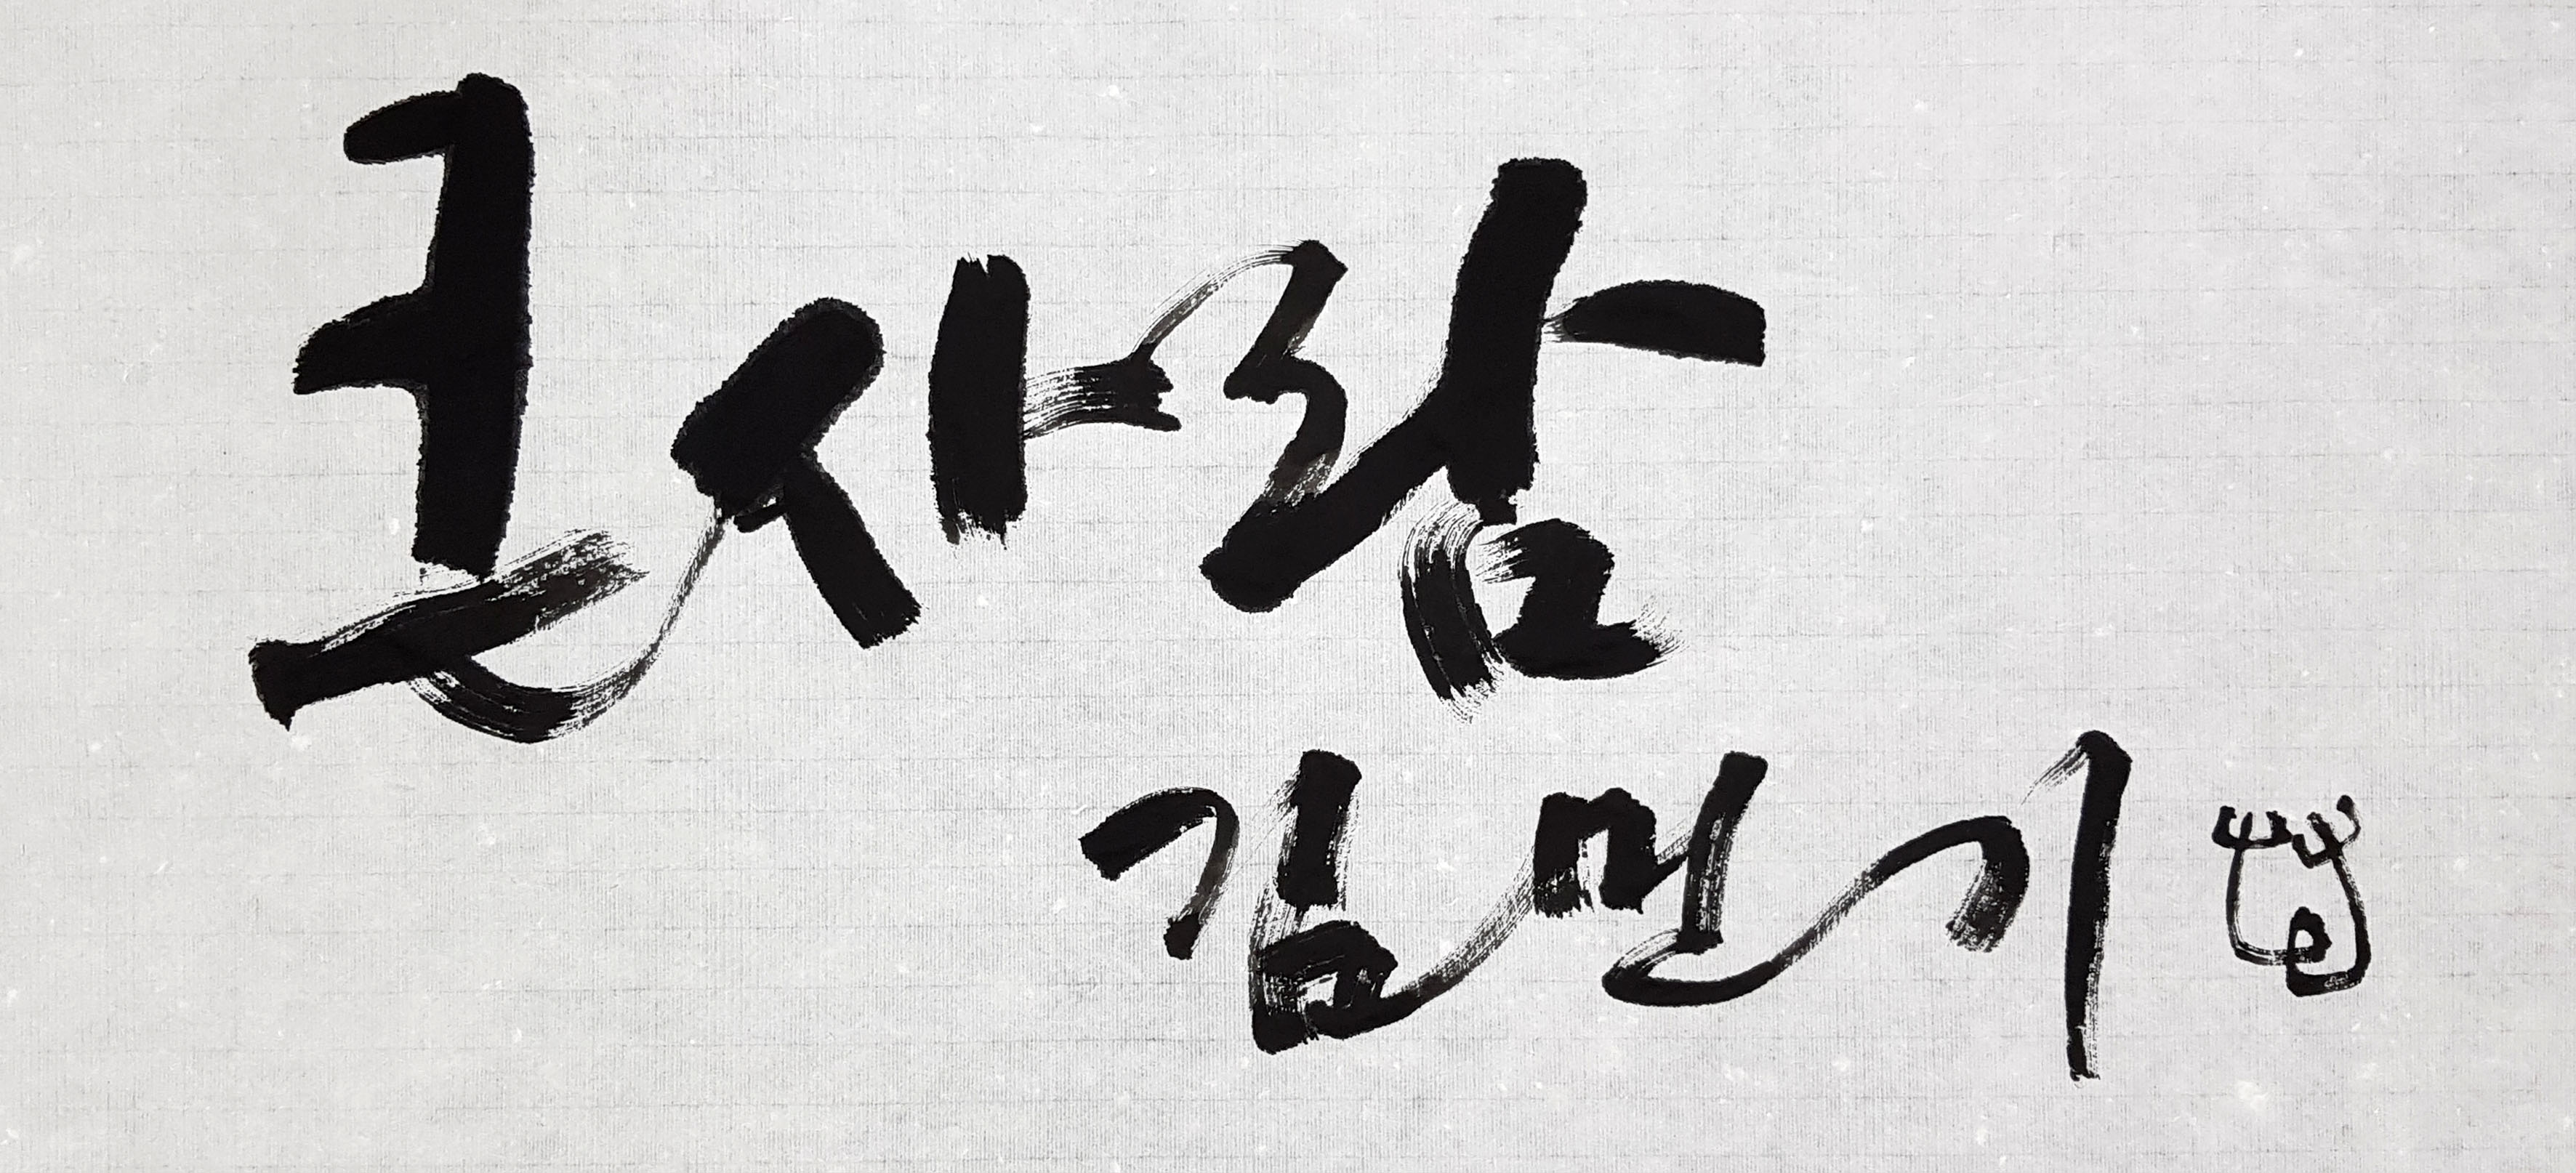 큰사람
김민기